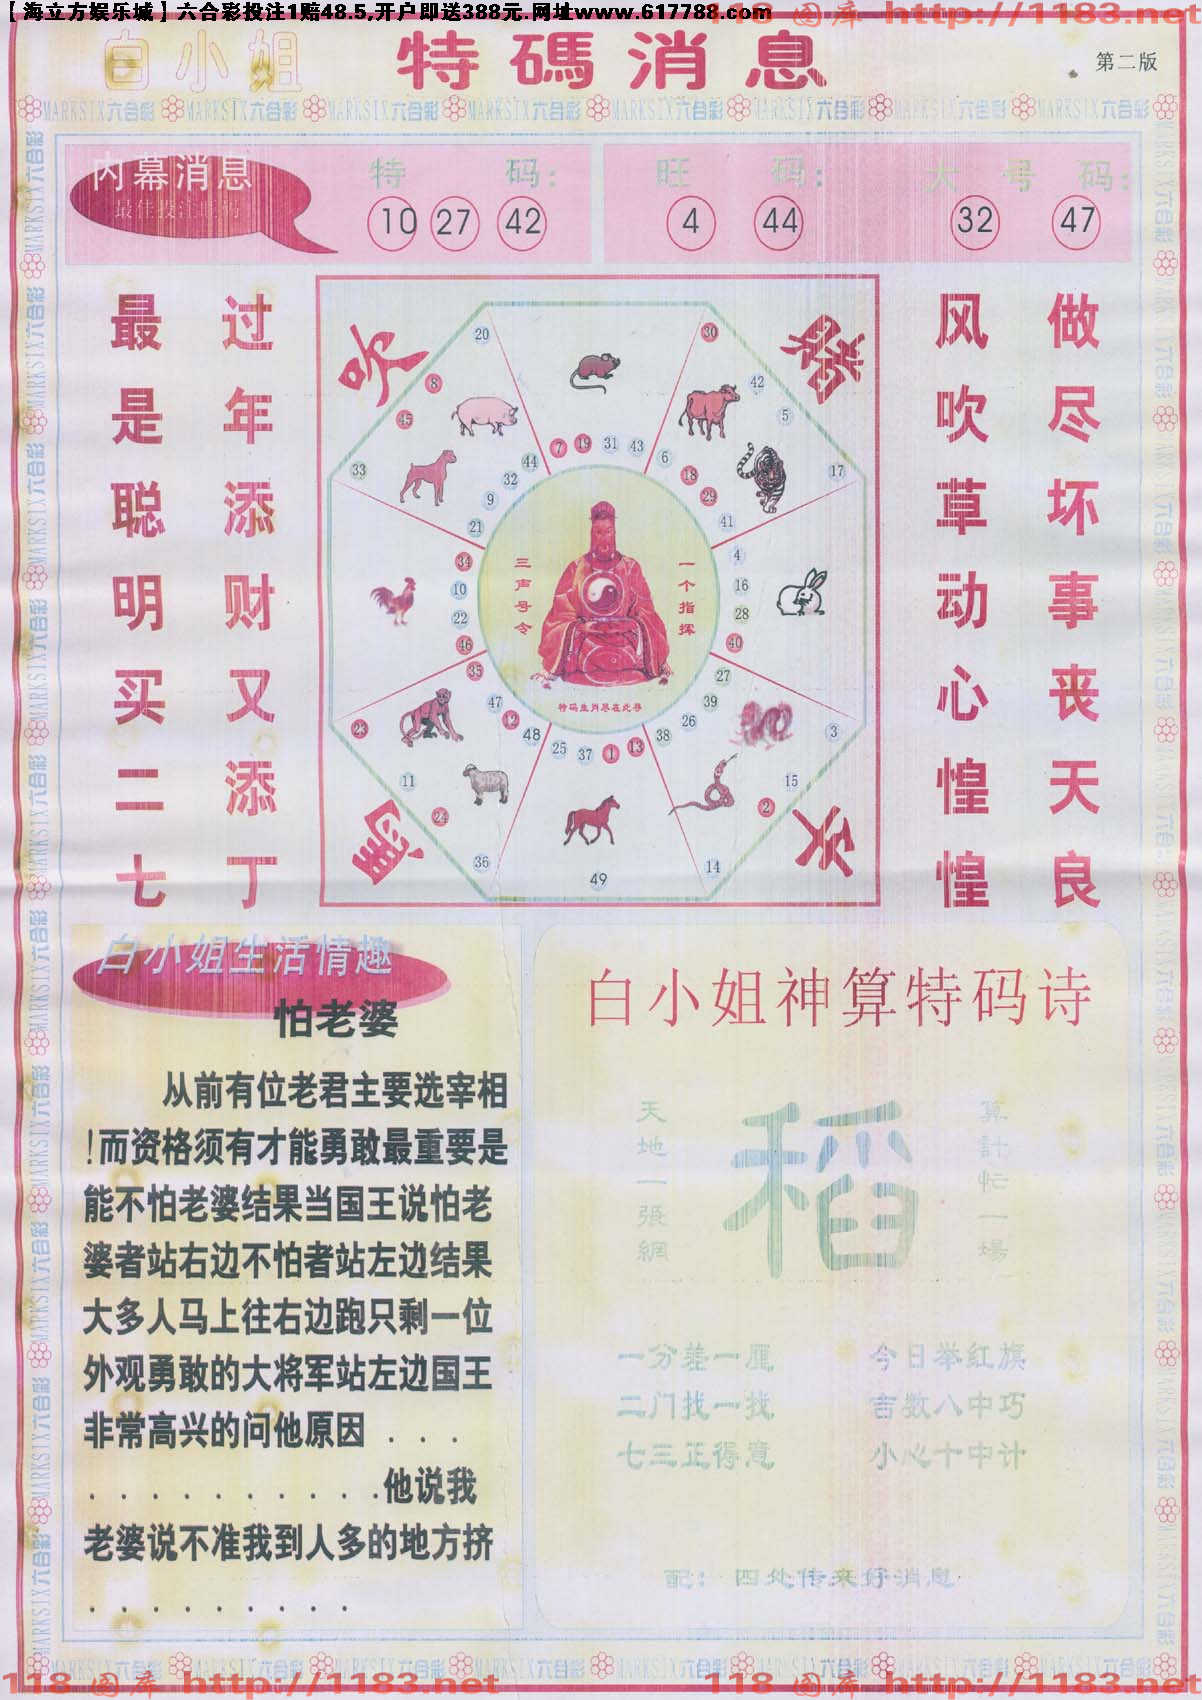 【海立方娱乐城】六合彩投注1赔48.5,开户即送388元.网址www.617788.com
118 图库 http://1183.net
白小姐 特碼消息
第二版
内幕消息
特 码:
10 27 42
旺 码:
4 44
大 号 码:
32 47
最是聪明买二七
过年添财又添丁
风吹草动心惶惶
做尽坏事丧天良
20 30
8 42
45 5
33 17
7 19 31 43
44 6
32 18
9 29
21 41
34 4
10 16
22 28
46 40
35 27
47 39
12 26
48 38
25 37 1 13
23 3
11 15
24 2
36 14
49
三声号令
一个指挥
特码生肖尽在此寻
白小姐生活情趣
怕老婆
从前有位老君主要选宰相
!而资格须有才能勇敢最重要是
能不怕老婆结果当国王说怕老
婆者站右边不怕者站左边结果
大多人马上往右边跑只剩一位
外观勇敢的大将军站左边国王
非常高兴的问他原因 . . .
. . . . . . . . . . .他说我
老婆说不准我到人多的地方挤
. . . . . . . . . .
白小姐神算特码诗
天地一張網
稻
算計忙一場
一分差一厘 今日举红旗
二门找一找 吉数八中巧
七三正得意 小心十中计
配: 四处传来好消息
118 图库 http://1183.net
118 图库 http://1183.net